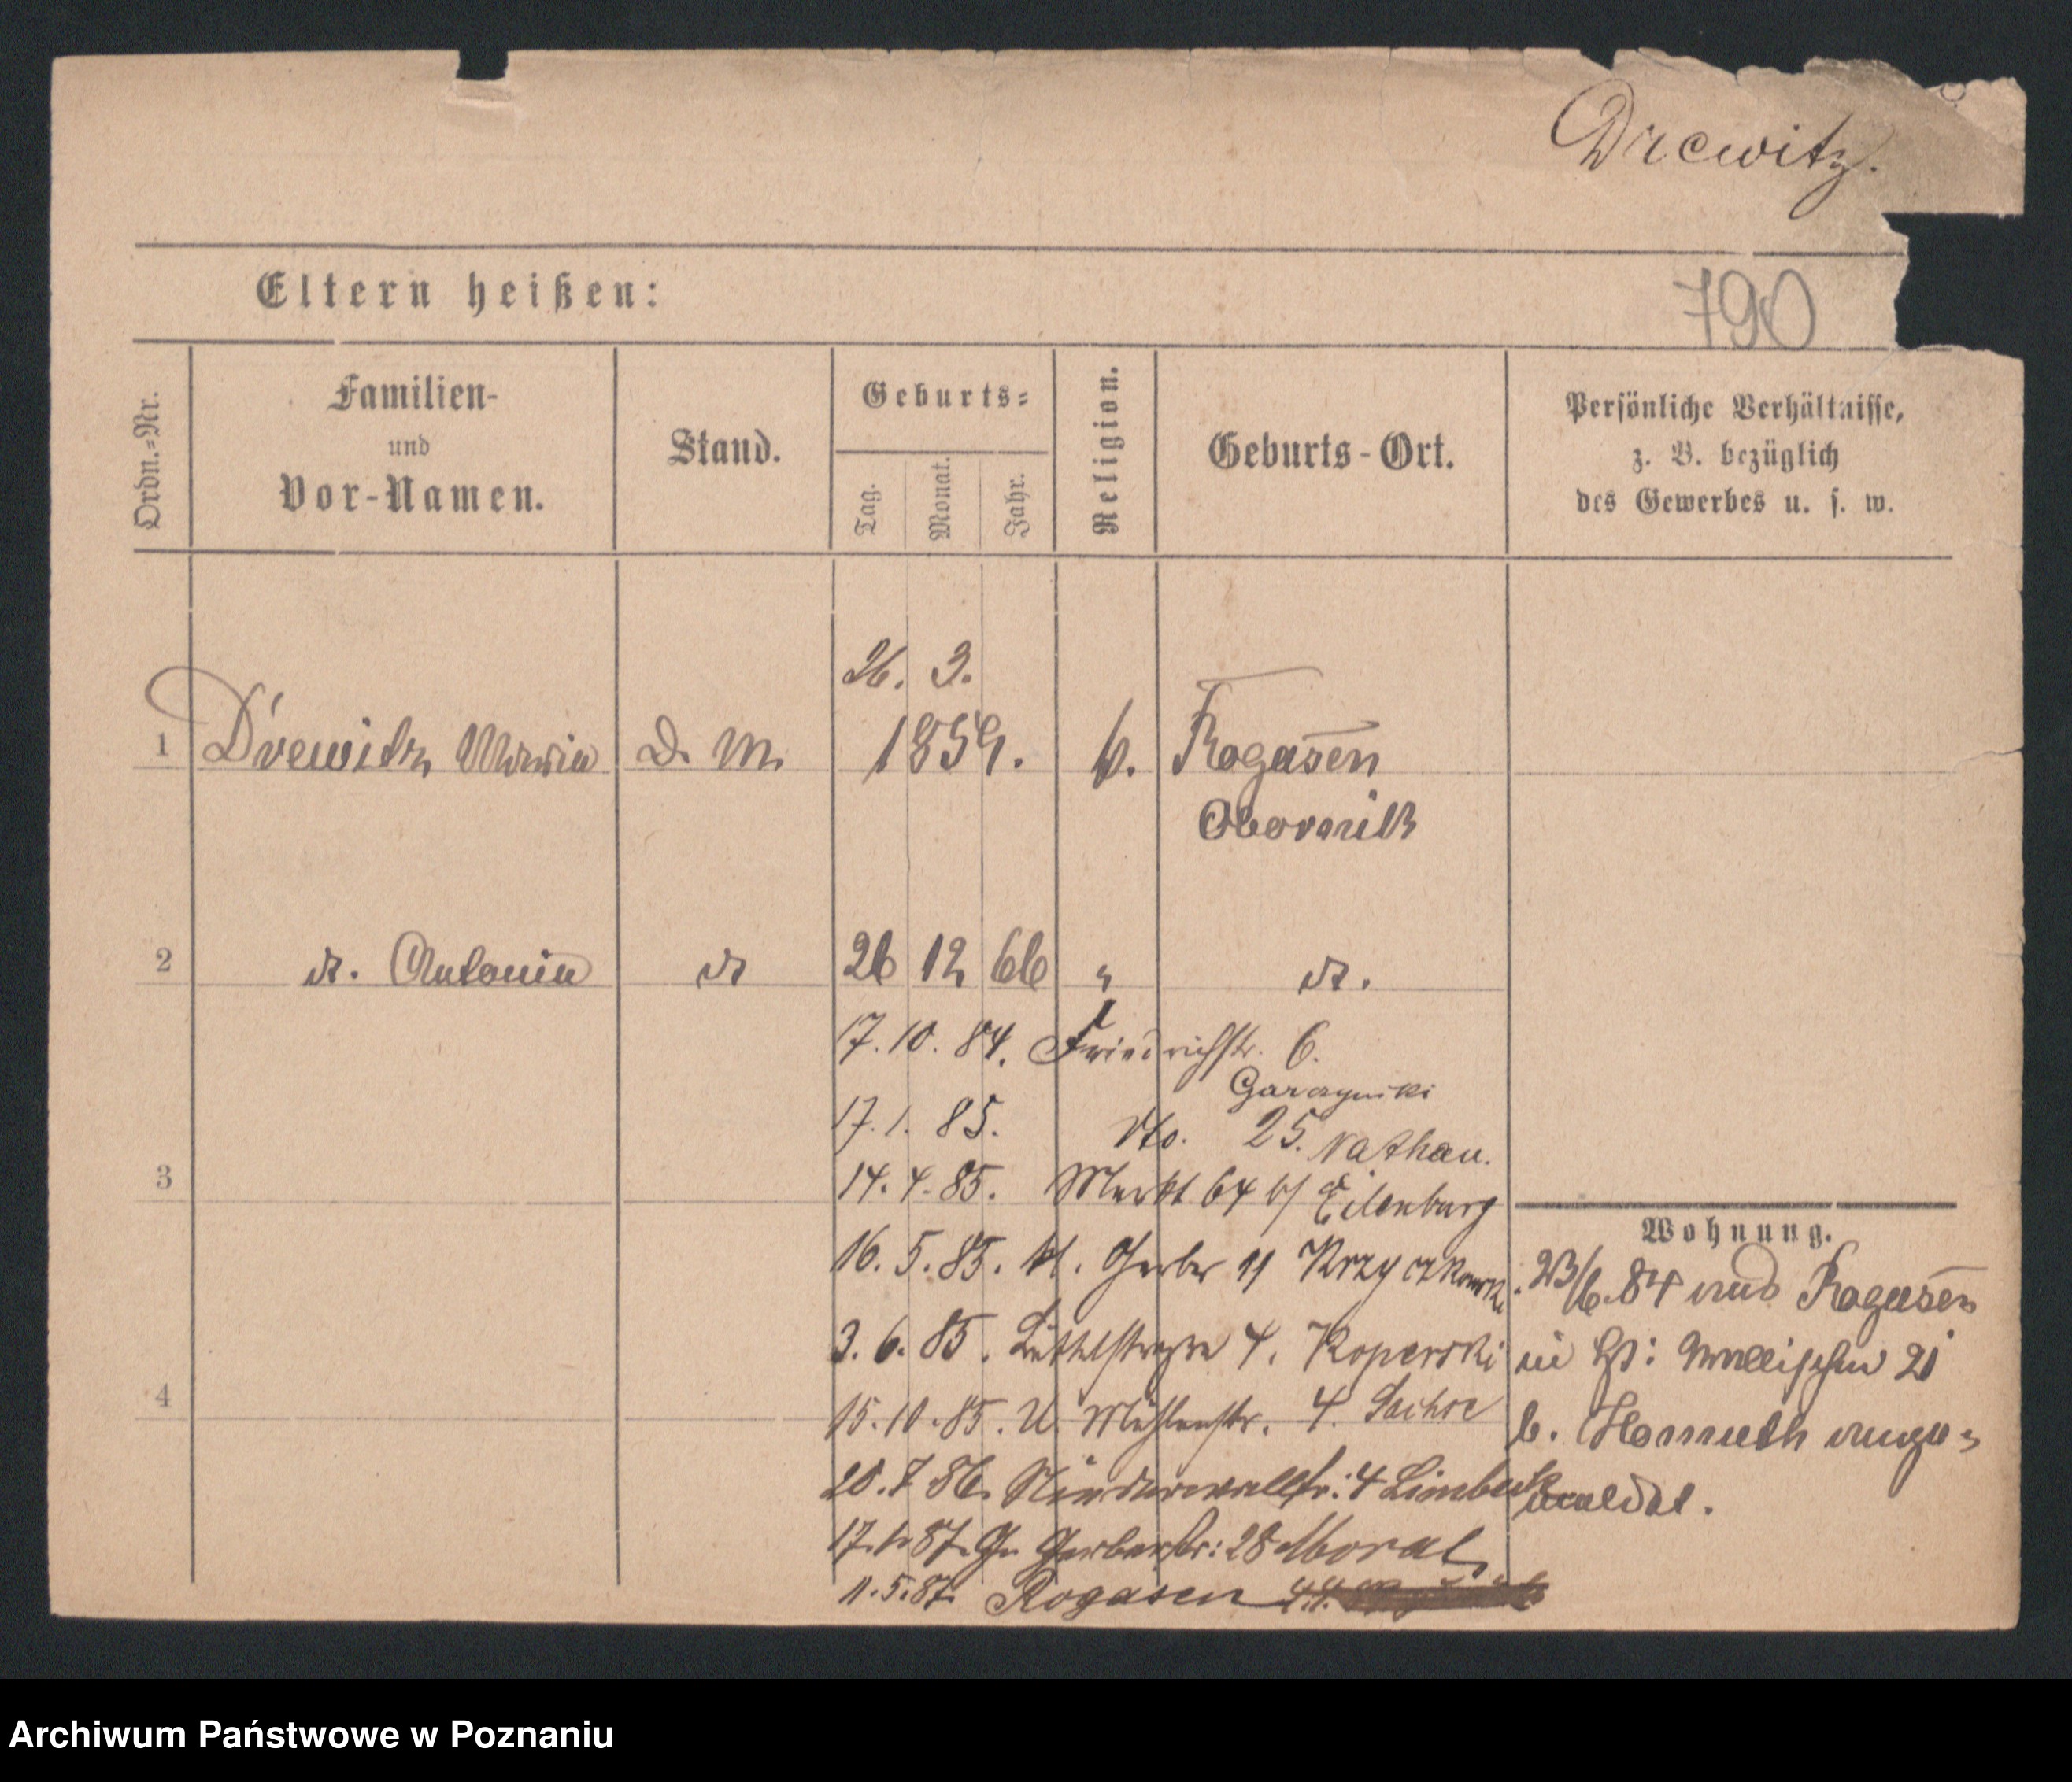 Drewitz.
Eltern heißen:
790
Ordn.=Nr.
Familien-
und
Vor-Namen.
Stand.
Geburts=
Tag.
Monat.
Jahr.
Religion.
Geburts-Ort.
Persönliche Verhältnisse,
z. B. bezüglich
des Gewerbes u. s. w.
26. 3.
1 Drewitz, Maria D. M. 1859. k. Rogasen
Obornik
2 dt. Antonie dt 26 12 66 " dt.
17. 10. 84. Friedrichstr. 6.
Garczynski
17. 1. 85. dto. 25. Nathan.
3 14. 4. 85. Markt 64 b/ Eilenburg
Wohnung.
16. 5. 85. kl. Gerber 11 Krzyczkowski
23/6. 84 aus Rogasen
3. 6. 85. 4. Koperski
in Wallischei 21
4 15. 10. 85. U. Mühlenstr. 4. Sachse
b. ange=
meldet.
20. 7 86. 4
17. 1. 87. Gr. Gerberstr: 28 Moral
11. 5. 87. Rogasen
Archiwum Państwowe w Poznaniu